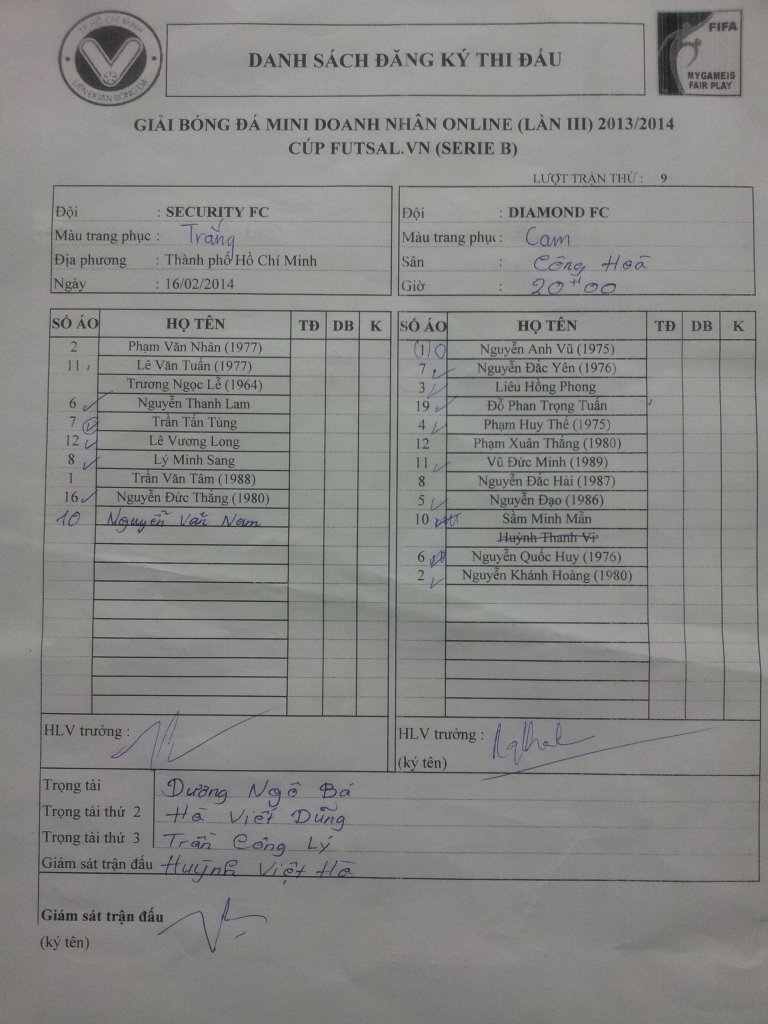 TP HỒ CHÍ MINH
LIÊN ĐOÀN BÓNG ĐÁ
DANH SÁCH ĐĂNG KÝ THI ĐẤU
FIFA
MY GAME IS
FAIR PLAY
GIẢI BÓNG ĐÁ MINI DOANH NHÂN ONLINE (LẦN III) 2013/2014
CÚP FUTSAL.VN (SERIE B)
LƯỢT TRẬN THỨ : 9
Đội : SECURITY FC
Màu trang phục : Trắng
Địa phương : Thành phố Hồ Chí Minh
Ngày : 16/02/2014
Đội : DIAMOND FC
Màu trang phục : Cam
Sân : Cộng Hoà
Giờ : 20H00
SỐ ÁO HỌ TÊN TĐ DB K
2 Phạm Văn Nhân (1977)
11 Lê Văn Tuấn (1977)
Trương Ngọc Lễ (1964)
6 Nguyễn Thanh Lam
7 Trần Tấn Tùng
12 Lê Vương Long
8 Lý Minh Sang
1 Trần Văn Tâm (1988)
16 Nguyễn Đức Thắng (1980)
10 Nguyễn Văn Nam
HLV trưởng :
SỐ ÁO HỌ TÊN TĐ DB K
1 Nguyễn Anh Vũ (1975)
7 Nguyễn Đắc Yên (1976)
3 Liêu Hồng Phong
19 Đỗ Phan Trọng Tuấn
4 Phạm Huy Thế (1975)
12 Phạm Xuân Thắng (1980)
11 Vũ Đức Minh (1989)
8 Nguyễn Đắc Hải (1987)
5 Nguyễn Đạo (1986)
10 Sầm Minh Mẫn
Huỳnh Thanh Vi
6 Nguyễn Quốc Huy (1976)
2 Nguyễn Khánh Hoàng (1980)
HLV trưởng :
(ký tên)
Trọng tài Dương Ngô Bá
Trọng tài thứ 2 Hà Viết Dũng
Trọng tài thứ 3 Trần Công Lý
Giám sát trận đấu Huỳnh Việt Hà
Giám sát trận đấu
(ký tên)